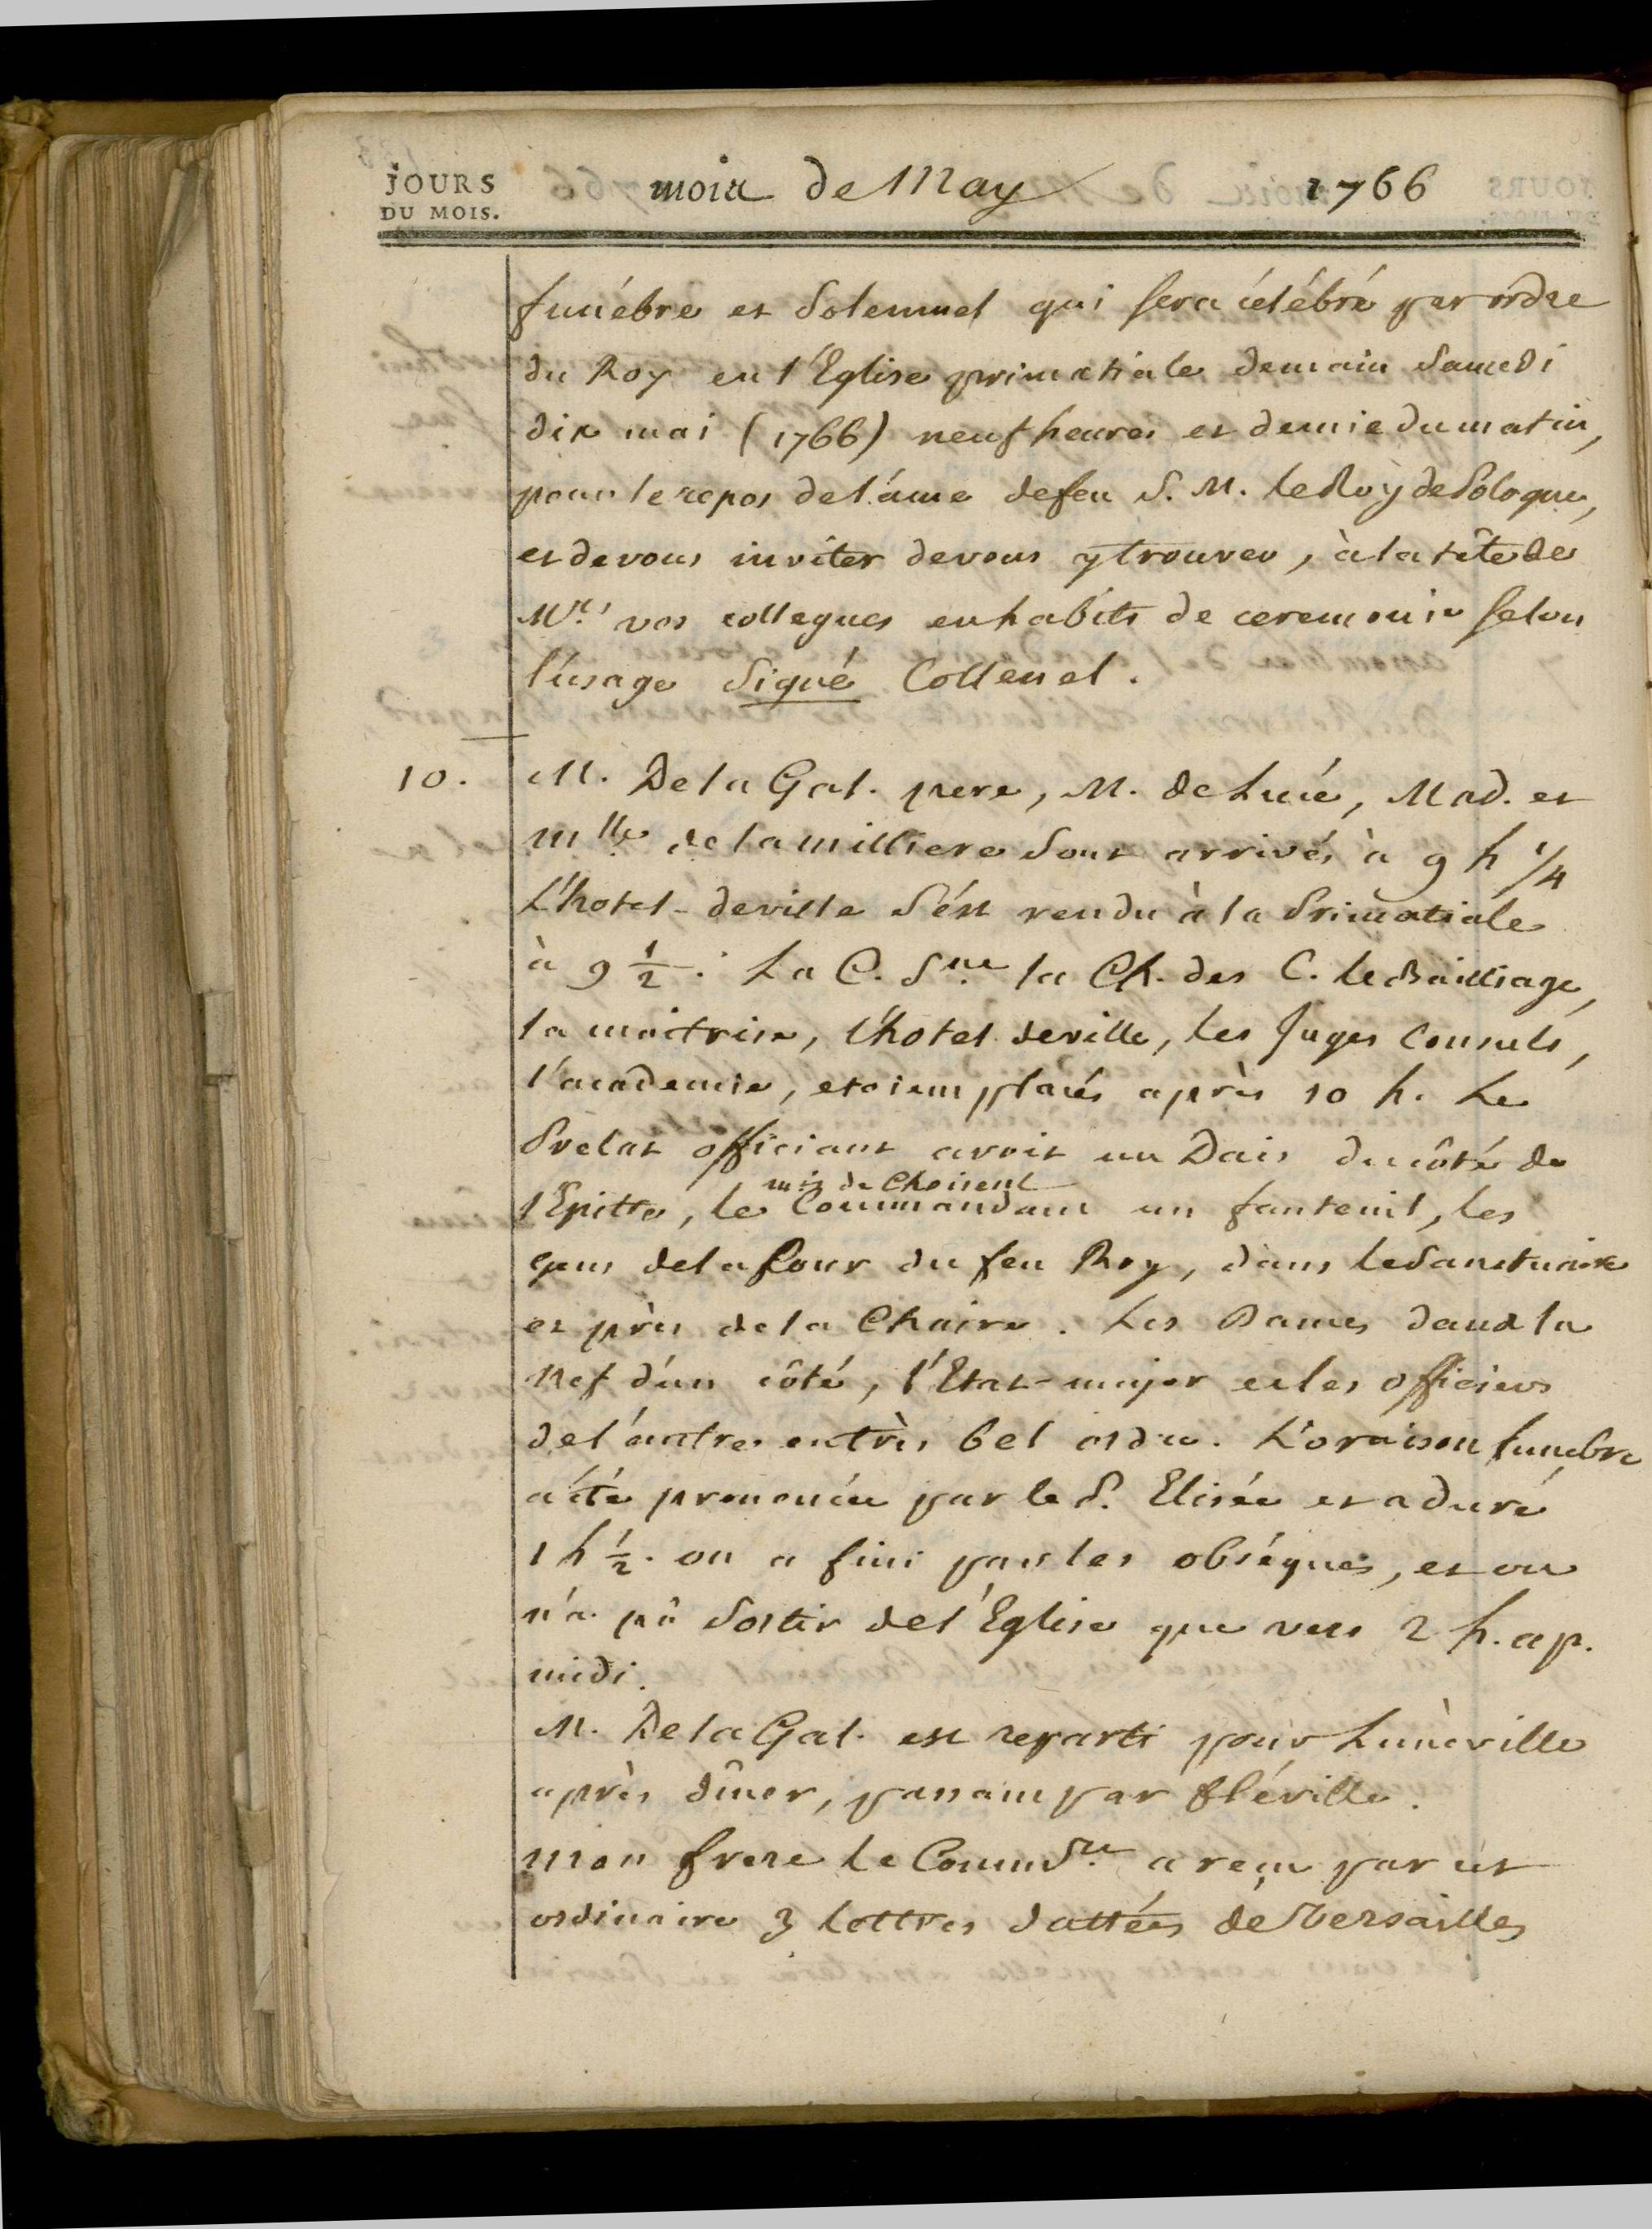 JOURS
DU MOIS.
mois de May 1766
funébre et solemnel qui sera célébré par ordre
du Roy en l'Eglise primatiale demain samedi
dix mai (1766) neuf heures et demie du matin,
pour le repos de l'ame de feu S. M. le Roy de Pologne,
et de vous inviter de vous y trouver, à la tête de
Mrs. vos collegues en habits de ceremonie selon
l'usage signé Collenel.
10.
M. De la Gal. pere, M. de Lucé, Mad. et
Mlle de la milliere sont arrivés à 9 h 1/4
L'hotel-de ville s'est rendu à la Primatiale
à 9 1/2. La C. Sne. la Ch. des C. le Bailliage,
la maitrise, l'hotel de ville, les Juges Consuls,
l'academie, etoient placés après 10 h. Le
Prelat officiant avoit un Dais du côté de
mis de Choiseul
l'Epitre, le Commandant un fauteuil, les
gens de la Cour du feu Roy, dans le Sanctuaire
et près de la Chaire. Les Dames dans la
Nef d'un côté, l'Etat-major et les officiers
de l'autre en très bel ordre. L'oraison funebre
a été prononcée par le P. Elisée et a duré
1 h 1/2. on a fini par les obséques, et on
n'a pû sortir de l'Eglise que vers 2 h. ap.
midi.
M. De la Gal. est reparti pour Lunéville
après dîner, passant par fléville.
mon frere le Commdre. a reçu par cet
ordinaire 3 lettres dattées de Versailles